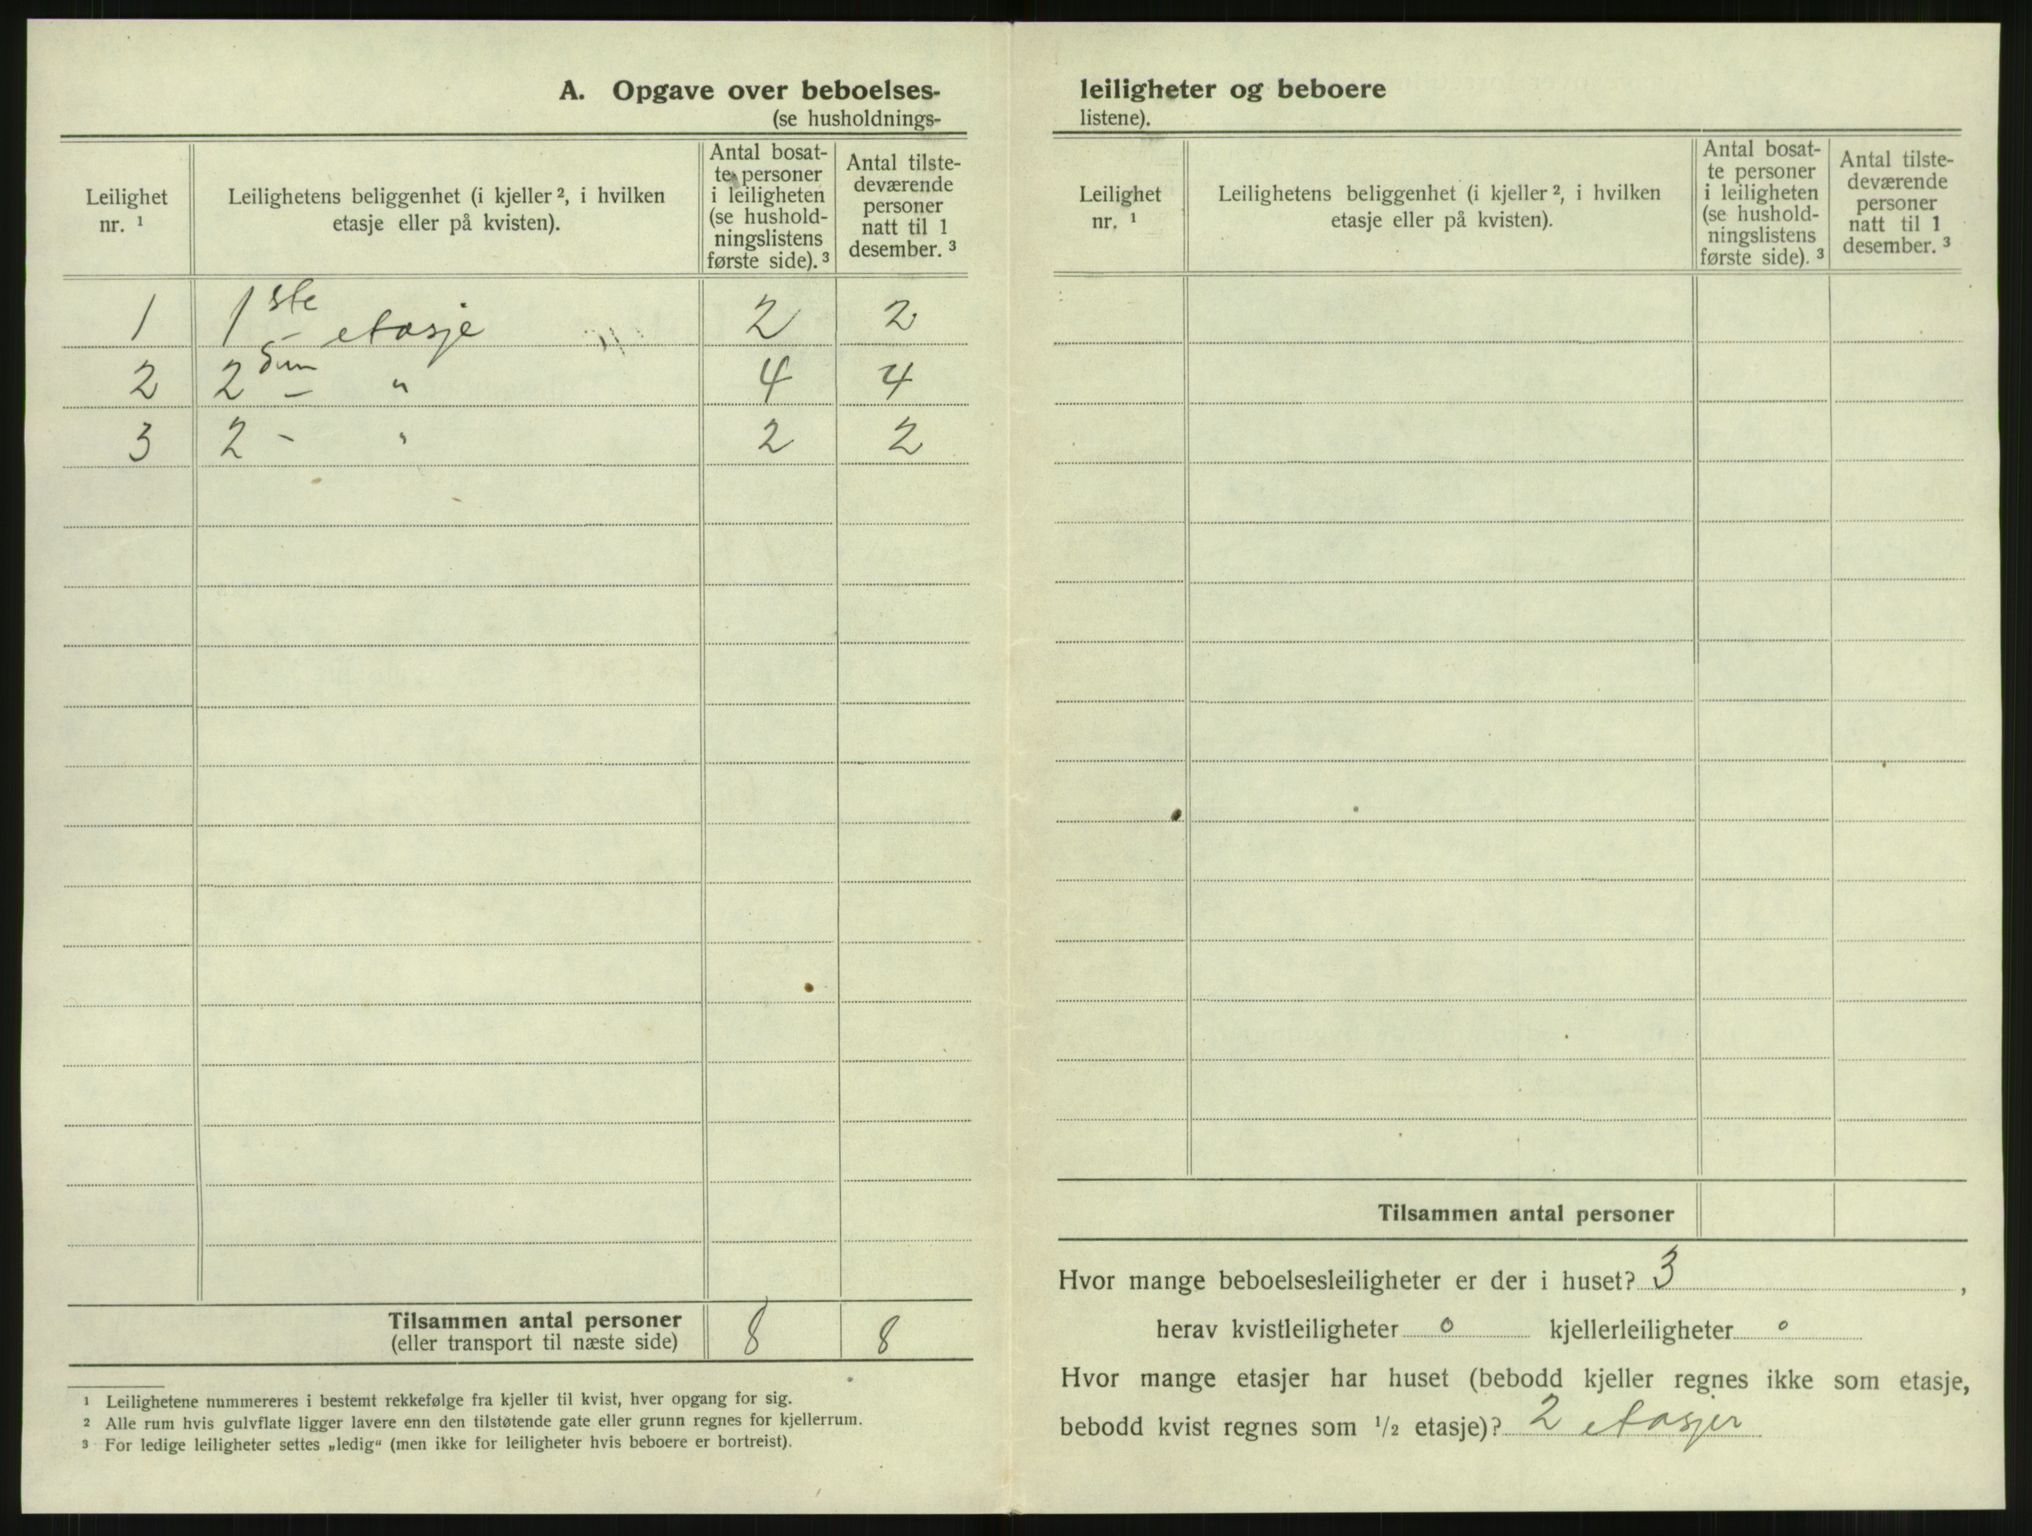 A. Opgave over beboelses-
(se husholdnings-
Leilighet
nr. ¹
Leilighetens beliggenhet (i kjeller ², i hvilken
etasje eller på kvisten).
Antal bosat-
te personer
i leiligheten
(se hushold-
ningslistens
første side). ³
Antal tilste-
deværende
personer
natt til 1
desember. ³
1 1ste - etasje 2 2
2 2 - " 4 4
3 2 - " 2 2
Tilsammen antal personer
(eller transport til næste side)
8 8
¹ Leilighetene nummereres i bestemt rekkefølge fra kjeller til kvist, hver opgang for sig.
² Alle rum hvis gulvflate ligger lavere enn den tilstøtende gate eller grunn regnes for kjellerrum.
³ For ledige leiligheter settes „ledig“ (men ikke for leiligheter hvis beboere er bortreist).
leiligheter og beboere
listene).
Leilighet
nr. ¹
Leilighetens beliggenhet (i kjeller ², i hvilken
etasje eller på kvisten).
Antal bosat-
te personer
i leiligheten
(se hushold-
ningslistens
første side). ³
Antal tilste-
deværende
personer
natt til 1
desember. ³
Tilsammen antal personer
Hvor mange beboelsesleiligheter er der i huset? 3 ,
herav kvistleiligheter 0 kjellerleiligheter 0
Hvor mange etasjer har huset (bebodd kjeller regnes ikke som etasje,
bebodd kvist regnes som ¹/₂ etasje)? 2 etasjer